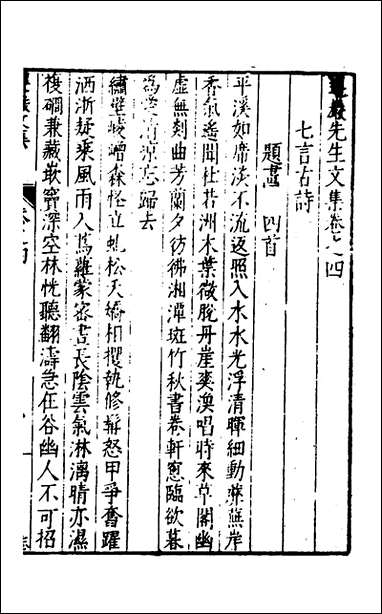 巖先生文集卷之四
七言古詩
題畫 四首
平溪如席淡不流返照入水水光浮清暉細動蘼蕪岸
香氣遙聞杜若洲木葉微脫丹崖爽漁唱時來草閣幽
虛無剡曲芳蘭夕彷彿湘潭斑竹秋書卷軒窓臨欲暮
為愛清涼忘歸去
繡壁崚嶒森怪立虬松天矯相攫執修髯怒甲爭奮躍
洒淅疑乘風雨入蔦蘿蒙密晝長陰雲氣淋漓晴亦濕
複磵兼藏嵌竇深空林恍聽翻濤急在谷幽人不可招